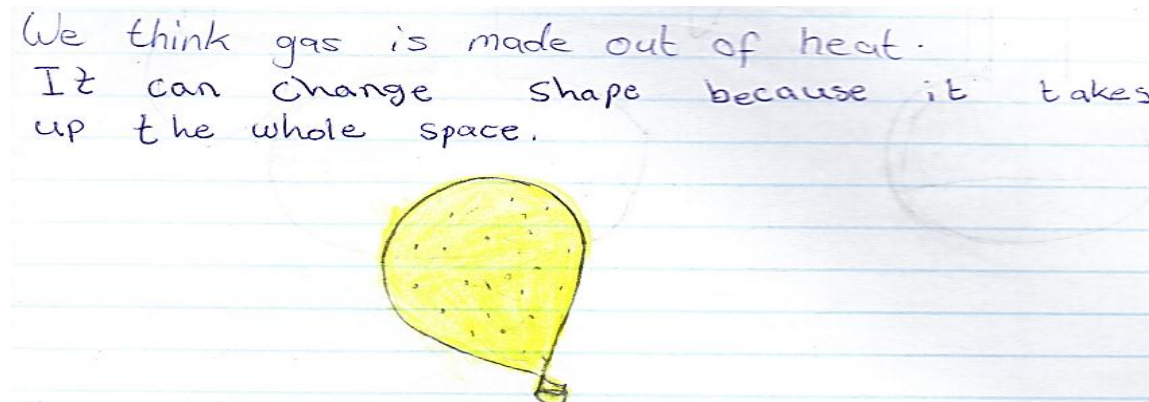 We think gas is made out of heat.
It can change shape because it takes
up the whole space.